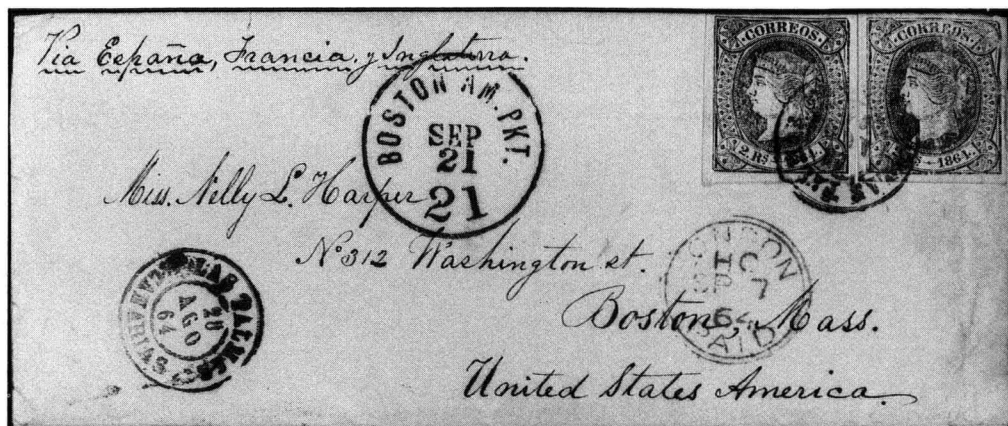 Via España, Francia, y Inglaterra.
CORREOS
2 Rs
CORREOS
1864.
BOSTON AM. PKT.
SEP
21
21
Miss. Nelly L. Harper
Nº 312 Washington st.
Boston, Mass.
United States America.
LONDON
IC
SP 7
64
PAID
LAS PALMAS
28
AGO
64
CANARIAS